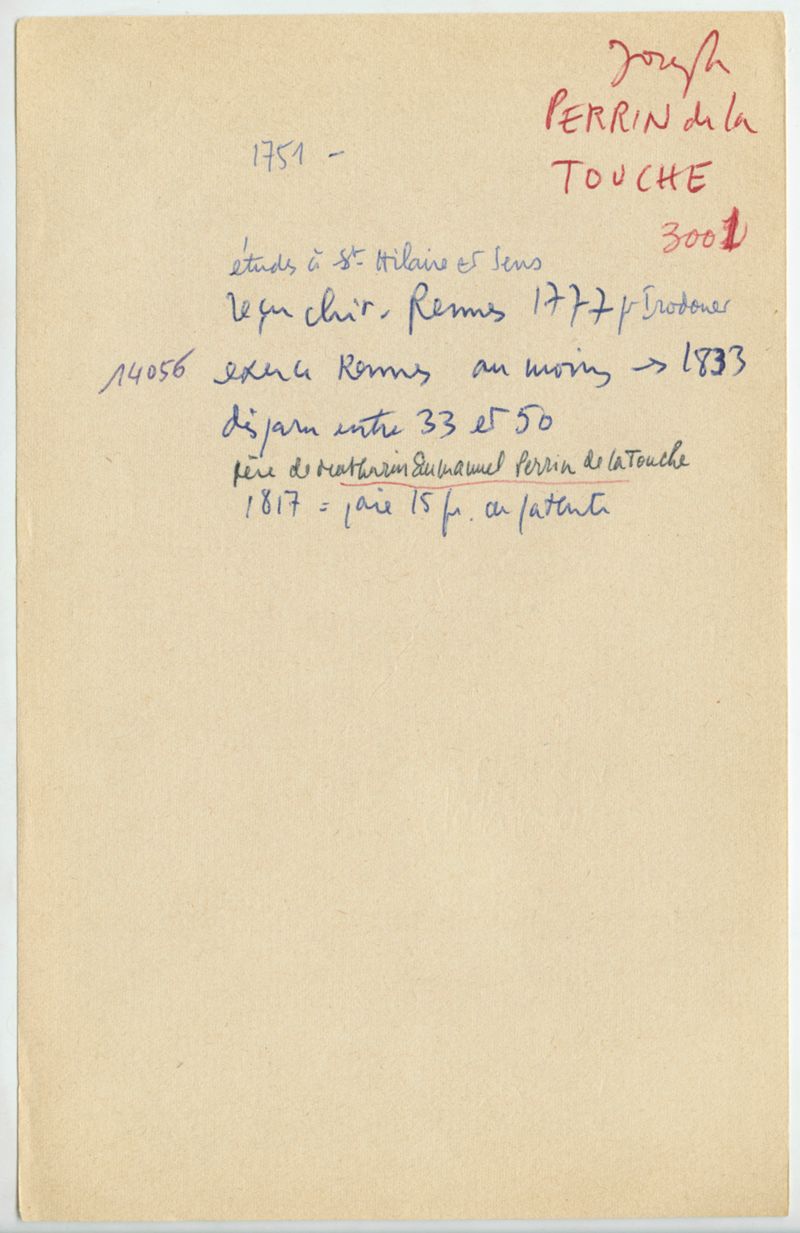 Joseph
PERRIN de la
TOUCHE
3001
1751 -
études à St Hilaire et Sens
reçu chir. Rennes 1777 pr Irodouer
14056 exerce Rennes au moins → 1833
disparu entre 33 et 50
père de Mathurin Emmanuel Perrin de la Touche
1817 = paie 15 fr. de patente